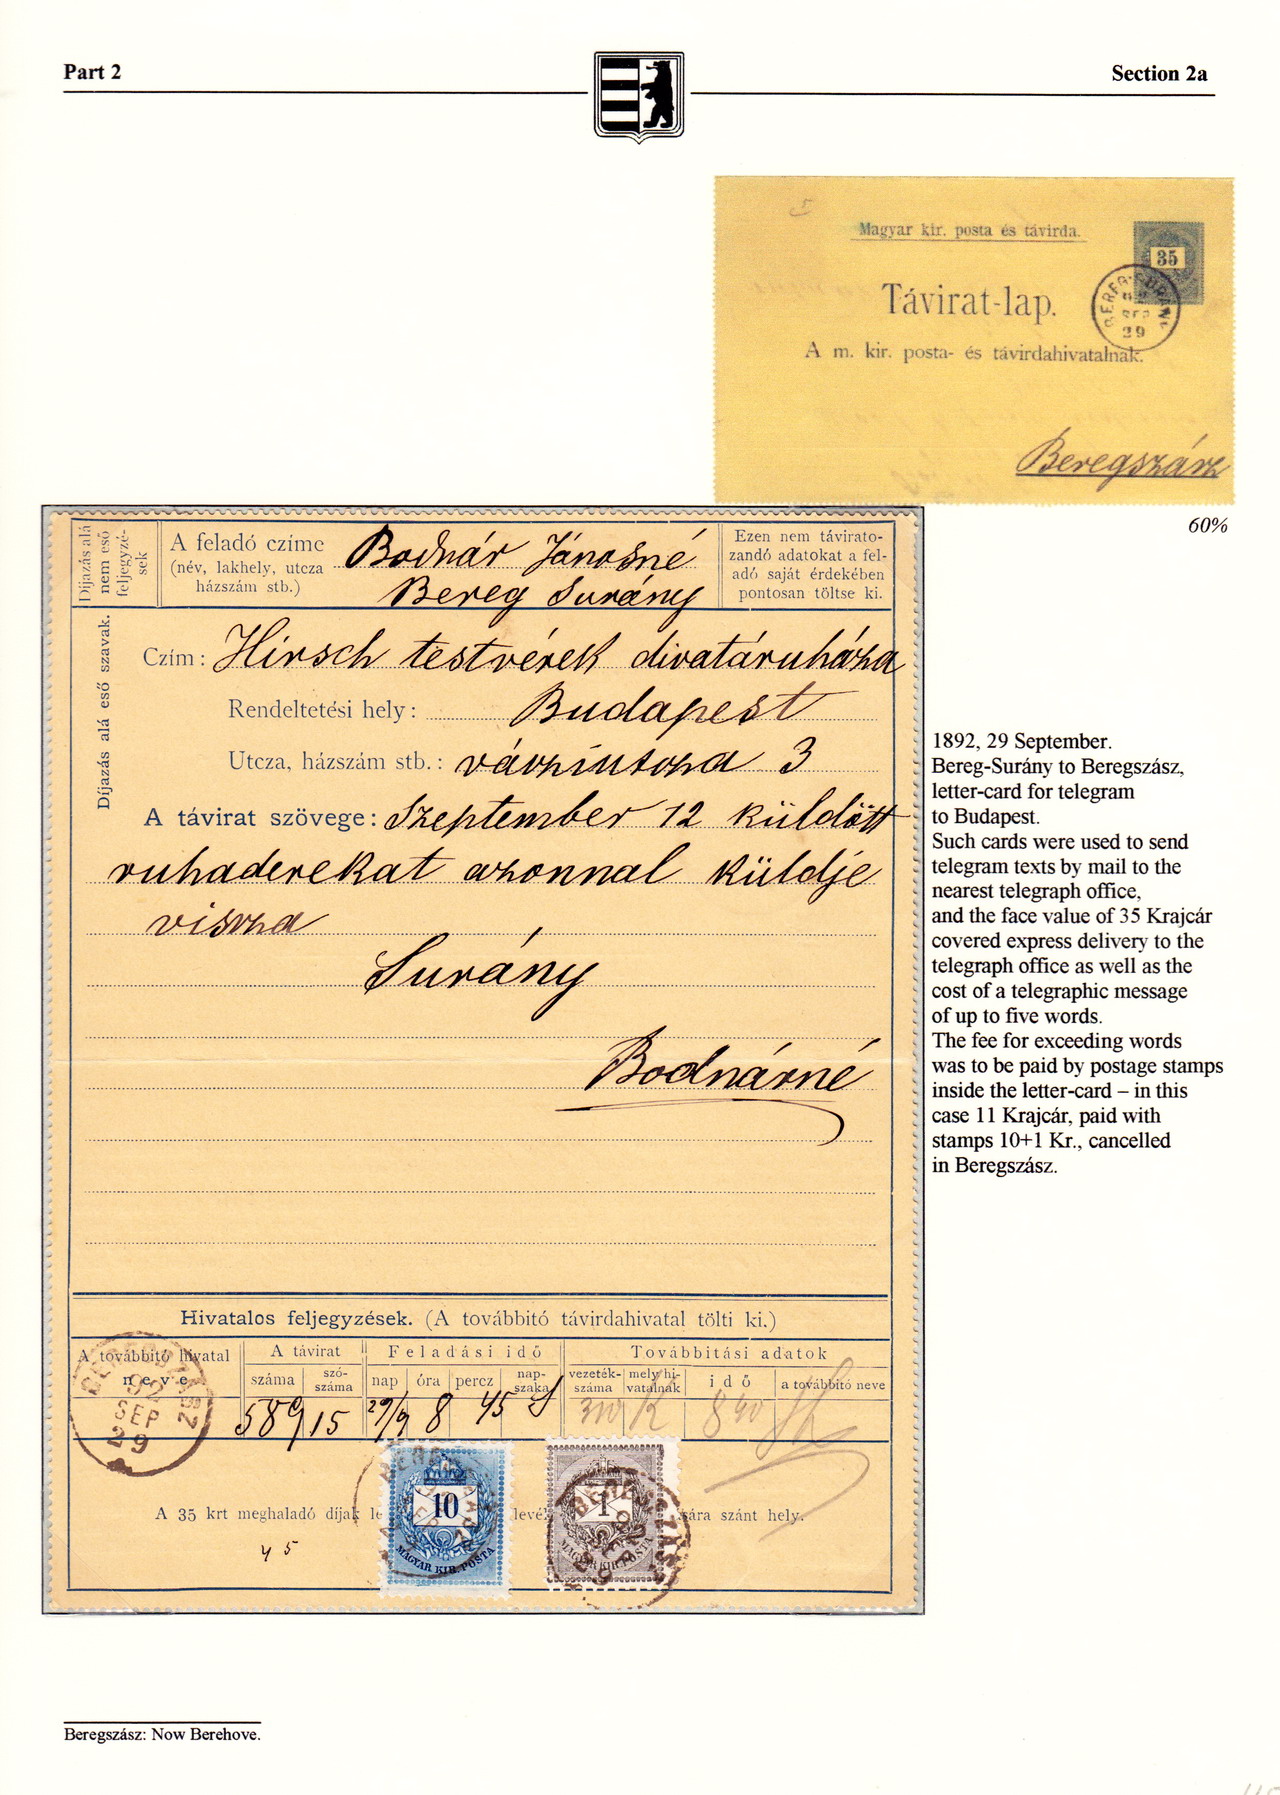 Part 2
Section 2a
Magyar kir. posta és távirda.
35
Távirat-lap.
A m. kir. posta- és távirdahivatalnak.
BEREG-SURÁNY
92
SEP
29
Beregszász
60%
Díjazás alá
nem eső
feljegyzé-
sek
A feladó czíme
(név, lakhely, utcza
házszám stb.)
Bodnár Jánosné
Bereg Surány
Ezen nem távirato-
zandó adatokat a fel-
adó saját érdekében
pontosan töltse ki.
Díjazás alá eső szavak.
Czím: Hirsch testvérek divatáruháza
Rendeltetési hely: Budapest
Utcza, házszám stb.: váczi utcza 3
A távirat szövege: Szeptember 12 küldött
ruhaderekat azonnal küldje
vissza
Surány
Bodnárné
1892, 29 September.
Bereg-Surány to Beregszász,
letter-card for telegram
to Budapest.
Such cards were used to send
telegram texts by mail to the
nearest telegraph office,
and the face value of 35 Krajcár
covered express delivery to the
telegraph office as well as the
cost of a telegraphic message
of up to five words.
The fee for exceeding words
was to be paid by postage stamps
inside the letter-card – in this
case 11 Krajcár, paid with
stamps 10+1 Kr., cancelled
in Beregszász.
Hivatalos feljegyzések. (A továbbitó távirdahivatal tölti ki.)
A továbbitó hivatal
neve
A távirat
száma
szó-
száma
Feladási idő
nap
óra
percz
nap-
szaka
Továbbitási adatok
vezeték-
száma
mely hi-
vatalnak
idő
a továbbitó neve
589 15 29/9 8 45
310 K 8 50
BEREGSZÁSZ
92
SEP
29
10
MAGYAR KIR. POSTA
1
MAGYAR KIR. POSTA
A 35 krt meghaladó díjak le levél ására szánt hely.
45
Beregszász: Now Berehove.